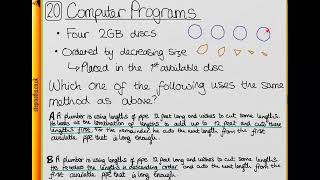 20 Computer Programs
• Four 2GB discs
• Ordered by decreasing size
↳ Placed in the 1st available disc
Which one of the following uses the same
method as above?
A A plumber is using lengths of pipe 12 feet long and wishes to cut some lengths.
He looks at the combination of lengths to add up to 12 feet and cuts these
lengths first. For the remainder he cuts the next length from the first
available pipe that is long enough.
B A plumber is using lengths of pipe 12 feet long and wishes to cut some lengths.
He writes the lengths in descending order and cuts the next length from the first
available pipe that is long enough.